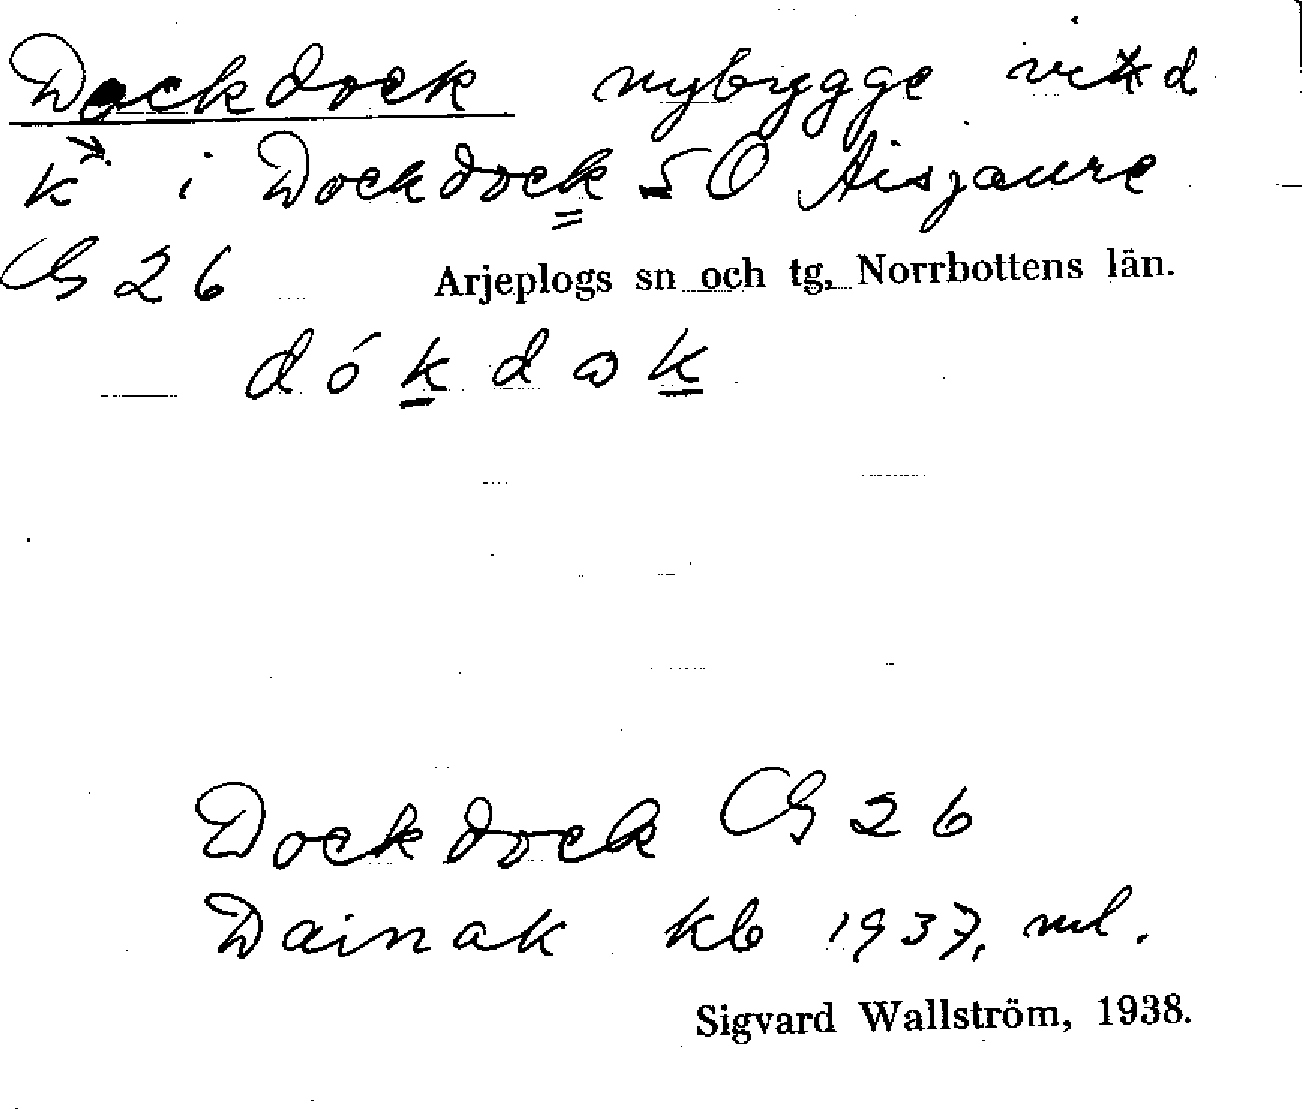 Dockdock nybygge vid
k i Dockdock SO Aisjaure
G 26 Arjeplogs sn och tg, Norrbottens län.
dókdɷk
Dockdock G 26
Dainak kb 1937, ml.
Sigvard Wallström, 1938.